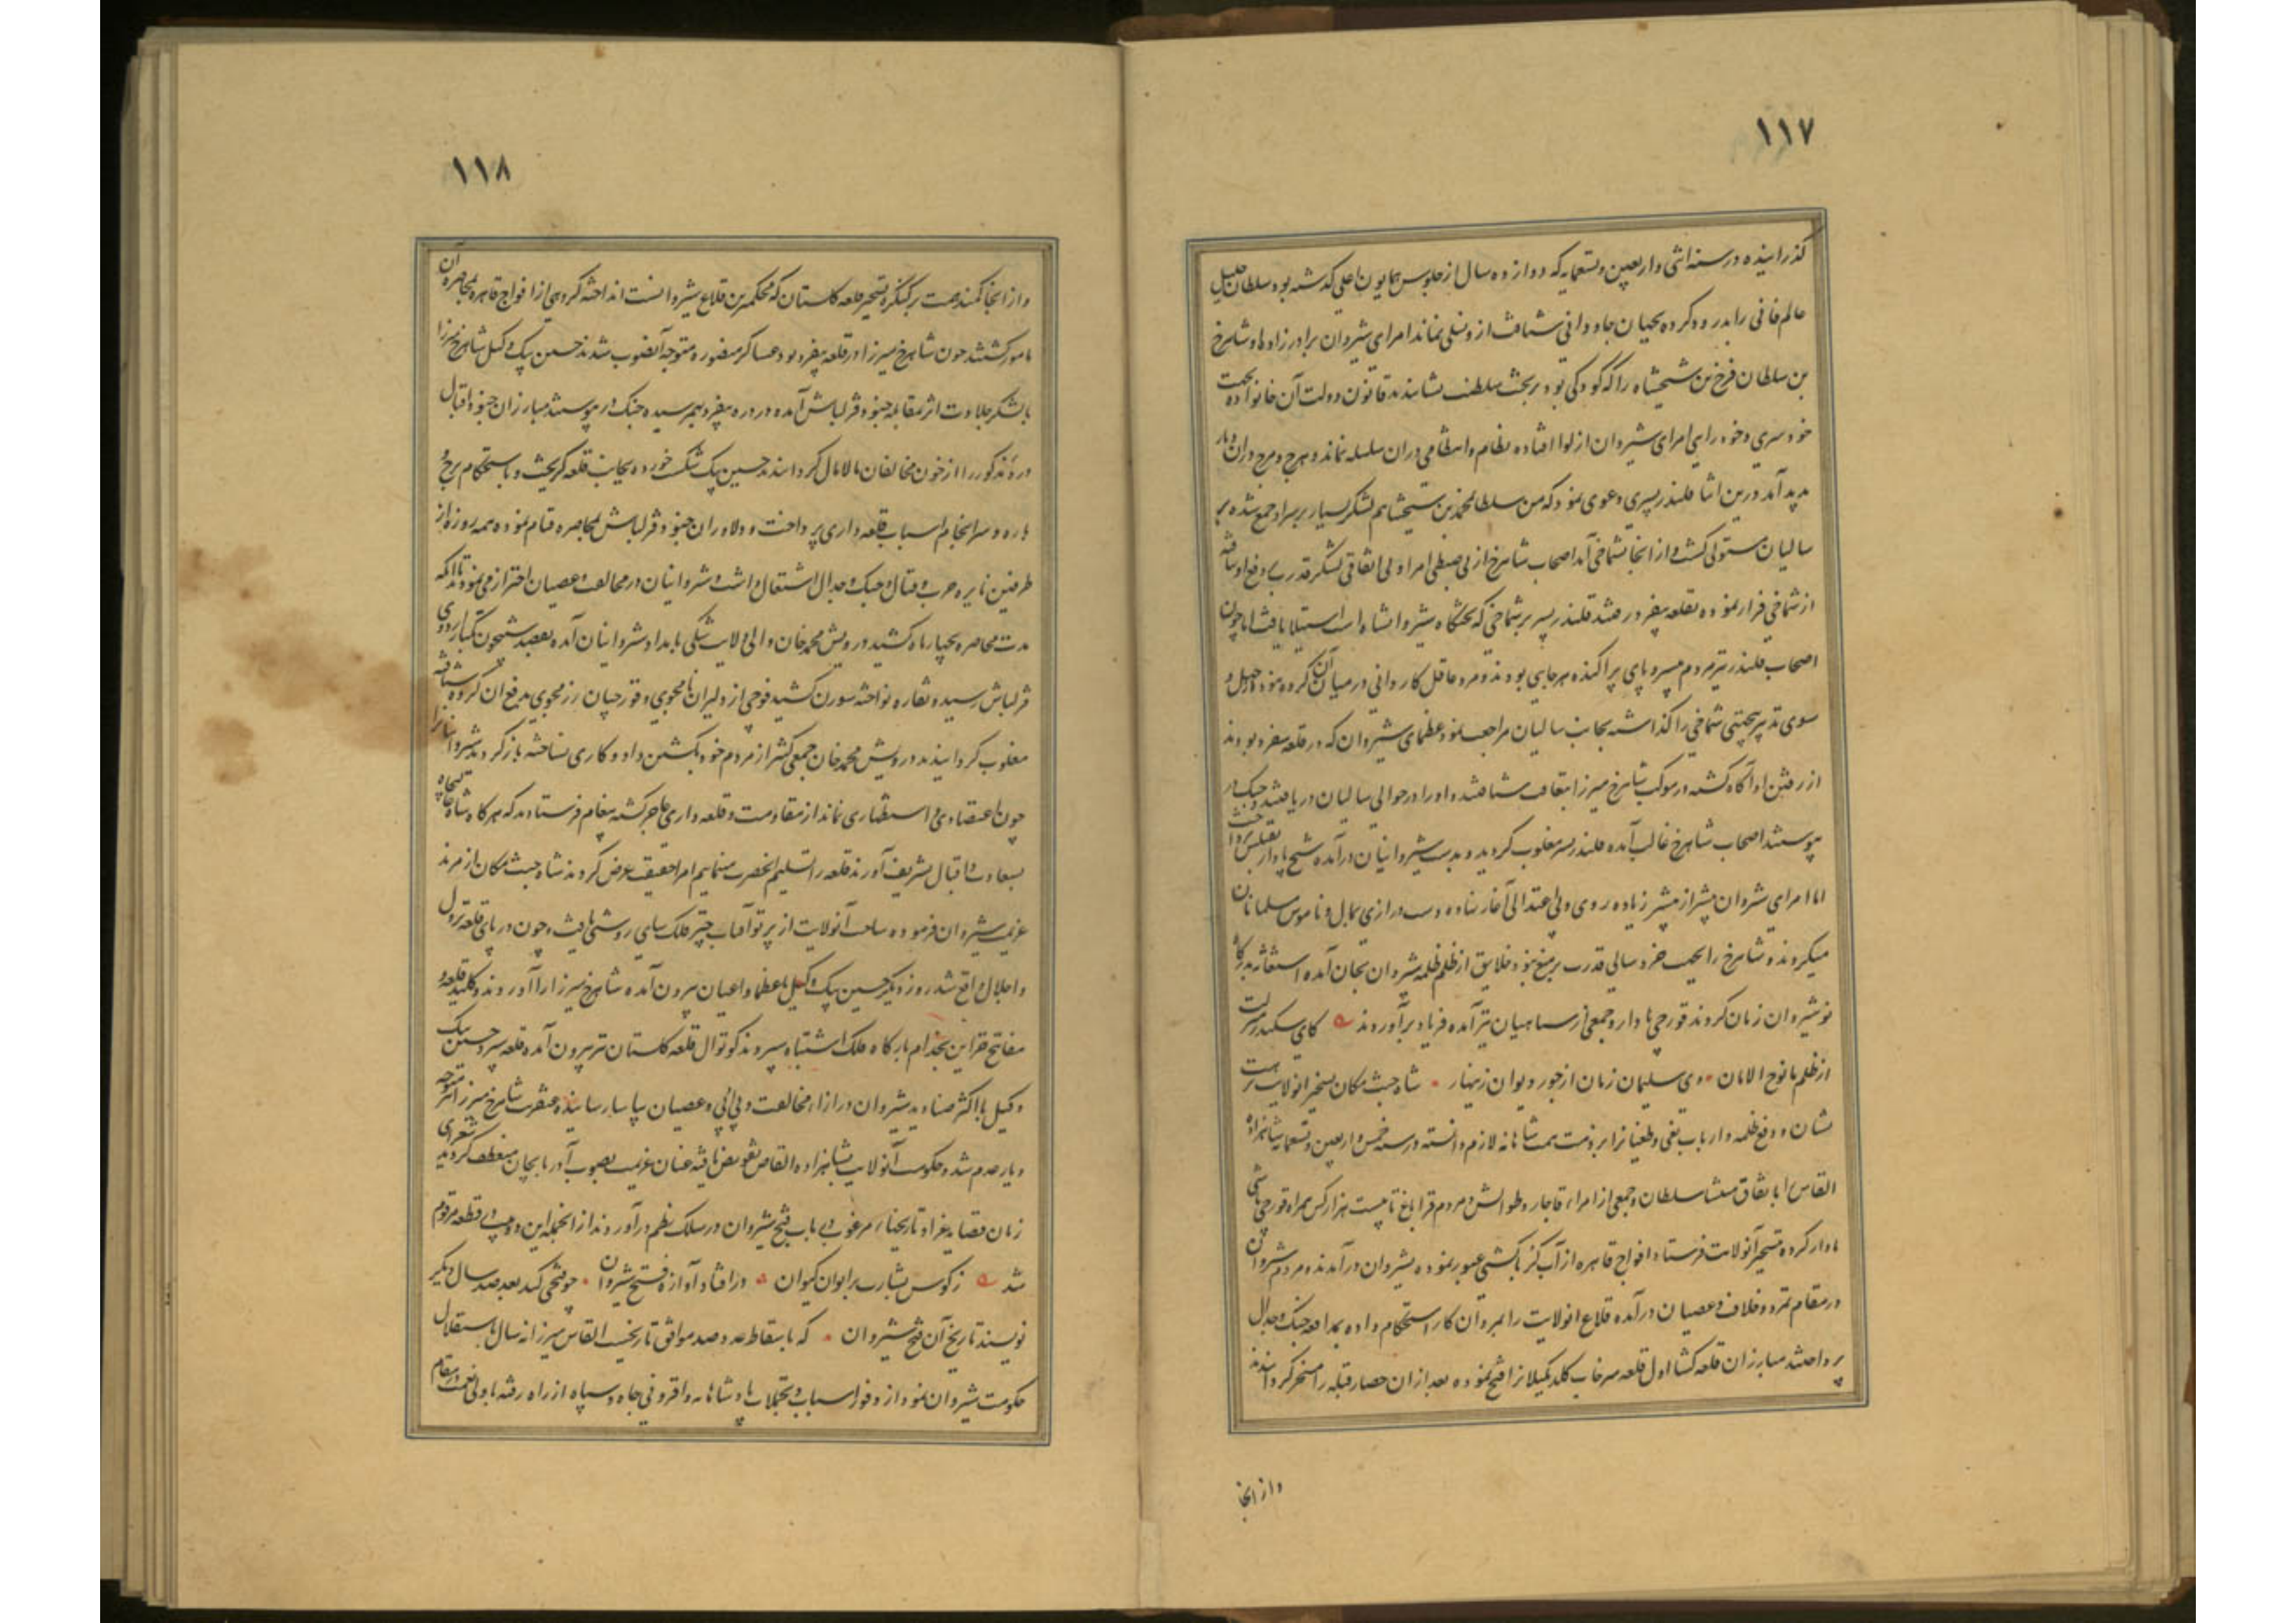 ۱۱۷
کذرانیده در سنه اثنی و اربعین و تسعمایه که دوازده سال از جلوس همایون اعلی کذشته بود سلطان خلیل
عالم فانی را بدرود کرده بجهان جاودانی شتافت از و نسلی نماند امرای شیروان برادرزاده او شاهرخ
بن سلطان فرخ بن شیخشاه را که کودکی بود بر تخت سلطنت نشانیدند قانون دولت آن خانواده بجهت
خودسری و خودرایی امرای شیروان از لوا افتاده نظام و انتظامی در ان سلسله نماند و هرج و مرج در ان دیار
پدید آمد در ین اثنا قلندر پسری دعوی نمود که من سلطان محمد بن شیخشاهم لشکر بسیار بر سر او جمع شده بر
سالیان مستولی کشت و از انجا بشماخی آمد اصحاب شاهرخ از بی ضبطی امرا و بی اتفاقی لشکر قدرت دفع او نیافته
از شماخی فرار نموده بقلعه بیغرد رفتند قلندر پسر بر شماخی که تختگاه شیروانشاه است استیلا یافت اما چون
اصحاب قلندر نیز مردم بی سر و پای پراکنده هر جایی بودند و مرد عاقل کاردانی در میان آن کروه نبود از جهل و
سوی تدبیر بختی شماخی را کذاشته بجانب سالیان مراجعت نمود عظمای شیروان که در قلعه بیغرد بودند
از رفتن او آکاه کشته در موکب شاهرخ میرزا بتعاقب شتافتند و او را در حوالی سالیان دریافتند و جنک در
پیوستند اصحاب شاهرخ غالب آمده قلندر پسر مغلوب کردید و بدست شیروانیان درآمده شیخ پادار بقتلش پرداخت
اما امرای شیروان بیشتر از پیشتر زیاده روی و بی اعتدالی آغاز نهاده دست درازی بمال و ناموس مسلمانان
میکردند و شاهرخ را بجهت خردسالی قدرت بر منع نبود خلایق از ظلم ظلمه شیروان بجان آمده استغاثه بدرکاه
نوشیروان زمان کردند قورچی پادار و جمعی از سپاهیان نیز آمده فریاد برآوردند کای سکندر منزلت
از ظلم یا نوح الامان وی سلیمان زمان از جور دیوان زینهار شاه جنت مکان تسخیر آنولایت بهشت
نشان و دفع ظلمه و ارباب بغی و طغیان را بر ذمت همت شاهانه لازم دانسته در سنه خمس و اربعین و تسعمایه شاهزاده
القاس را باتفاق منتشا سلطان و جمعی از امراء قاجار و طوالش و مردم قراباغ تا بیست هزار کس همراه قورچی باشی
پادار کرده بتسخیر آنولایت فرستاد افواج قاهره از آب کر بکشتی عبور نموده بشیروان درآمدند مردم شیروان
در مقام تمرد و خلاف و عصیان درآمده قلاع انولایت را بمردان کار استحکام داده بمدافعه جنک و جدال
پرداختند مبارزان قلعه کشا اول قلعه سرخاب کلدکیلان را فتح نموده بعد از ان حصار قبله را مسخر کردانیدند
و از انجا
۱۱۸
و از انجا کمند همت بر کنکره تسخیر قلعه کلستان که محکمترین قلاع شیروانست انداخته کروهی از افواج قاهره بمحاصره آن
مامور کشتند چون شاهرخ میرزا در قلعه بیغرد بود عساکر منصوره متوجه آنصوب شدند حسین بیک وکیل شاهرخ میرزا
با لشکر جلادت اثر بمقابله جنود قزلباش آمده در دره بیغرد بهم رسیده جنک در پیوستند مبارزان جنود اقبال
دره مذکور را از خون مخالفان مالامال کردانیدند حسین بیک شکست خورده بجانب قلعه کریخت و باستحکام برج و
باره و سرانجام اسباب قلعه داری پرداخت و دلاوران جنود قزلباش بمحاصره قیام نموده همه روزه از
طرفین نایره حرب و قتال و جنک و جدال اشتعال داشت و شروانیان در مخالفت و عصیان احتراز نمی نمودند تا آنکه
مدت محاصره بچهار ماه کشید درویش محمد خان والی ولایت شکی بامداد شروانیان آمده بقصد شبیخون بکنار اردوی
قزلباش رسیده نقاره نواخته سورن کشید فوجی از دلیران نامجوی و قورچیان رزمجوی بدفع ان کروه شتافته
مغلوب کردانیدند درویش محمد خان جمعی کثیر از مردم خود بکشتن داد و کاری نساخته باز کردید شروانیانرا
چون اعتضادی و استظهاری نماند از مقاومت و قلعه داری عاجز کشته پیغام فرستادند که هر کاه شاه جمجاه
بسعادت و اقبال تشریف آورند قلعه را تسلیم انحضرت مینماییم امرا حقیقت عرض کردند شاه جنت مکان از مرند
عزیمت شیروان فرموده ساحت آنولایت از پرتو آفتاب چتر فلک سای روشنی یافت و چون در پای قلعه نزول
و اجلال واقع شد روز دیکر حسین بیک وکیل با عظما و اعیان بیرون آمده شاهرخ میرزا را آوردند و کلید قلعه و
مفاتیح خزاین بخدام بارکاه فلک اشتباه سپردند کوتوال قلعه کلستان نیز بیرون آمده قلعه سپرد حسین بیک
وکیل با اکثر صنادید شیروان در ازاء مخالفت و بی ادبی و عصیان بیاسا رسانیده عنقریب شاهرخ میرزا نیز متوجه
دیار عدم شد و حکومت آنولایت بشاهزاده القاص تفویض یافته عنان عزیمت بصوب آذربایجان منعطف کردید شعرای
زمان قصاید غرا و تاریخهاء مرغوب بی باب فتح شیروان در سلک نظم درآوردند از انجمله این دو بیت و قطعه مرقوم
شد ز کوس بشارت بر ایوان کیوان در افتاد آوازه فتح شیروان چو فتحی کند بعد صد سال دیکر
نویسند تاریخ آن فتح شیروان که باسقاط عدد صد موافق تاریخست القاس میرزا نه سال باستقلال
حکومت شیروان نمود از وفور اسباب و تجملات پادشاهانه و افزونی جاه و سپاه از راه رفته با ولی نعمت در مقام